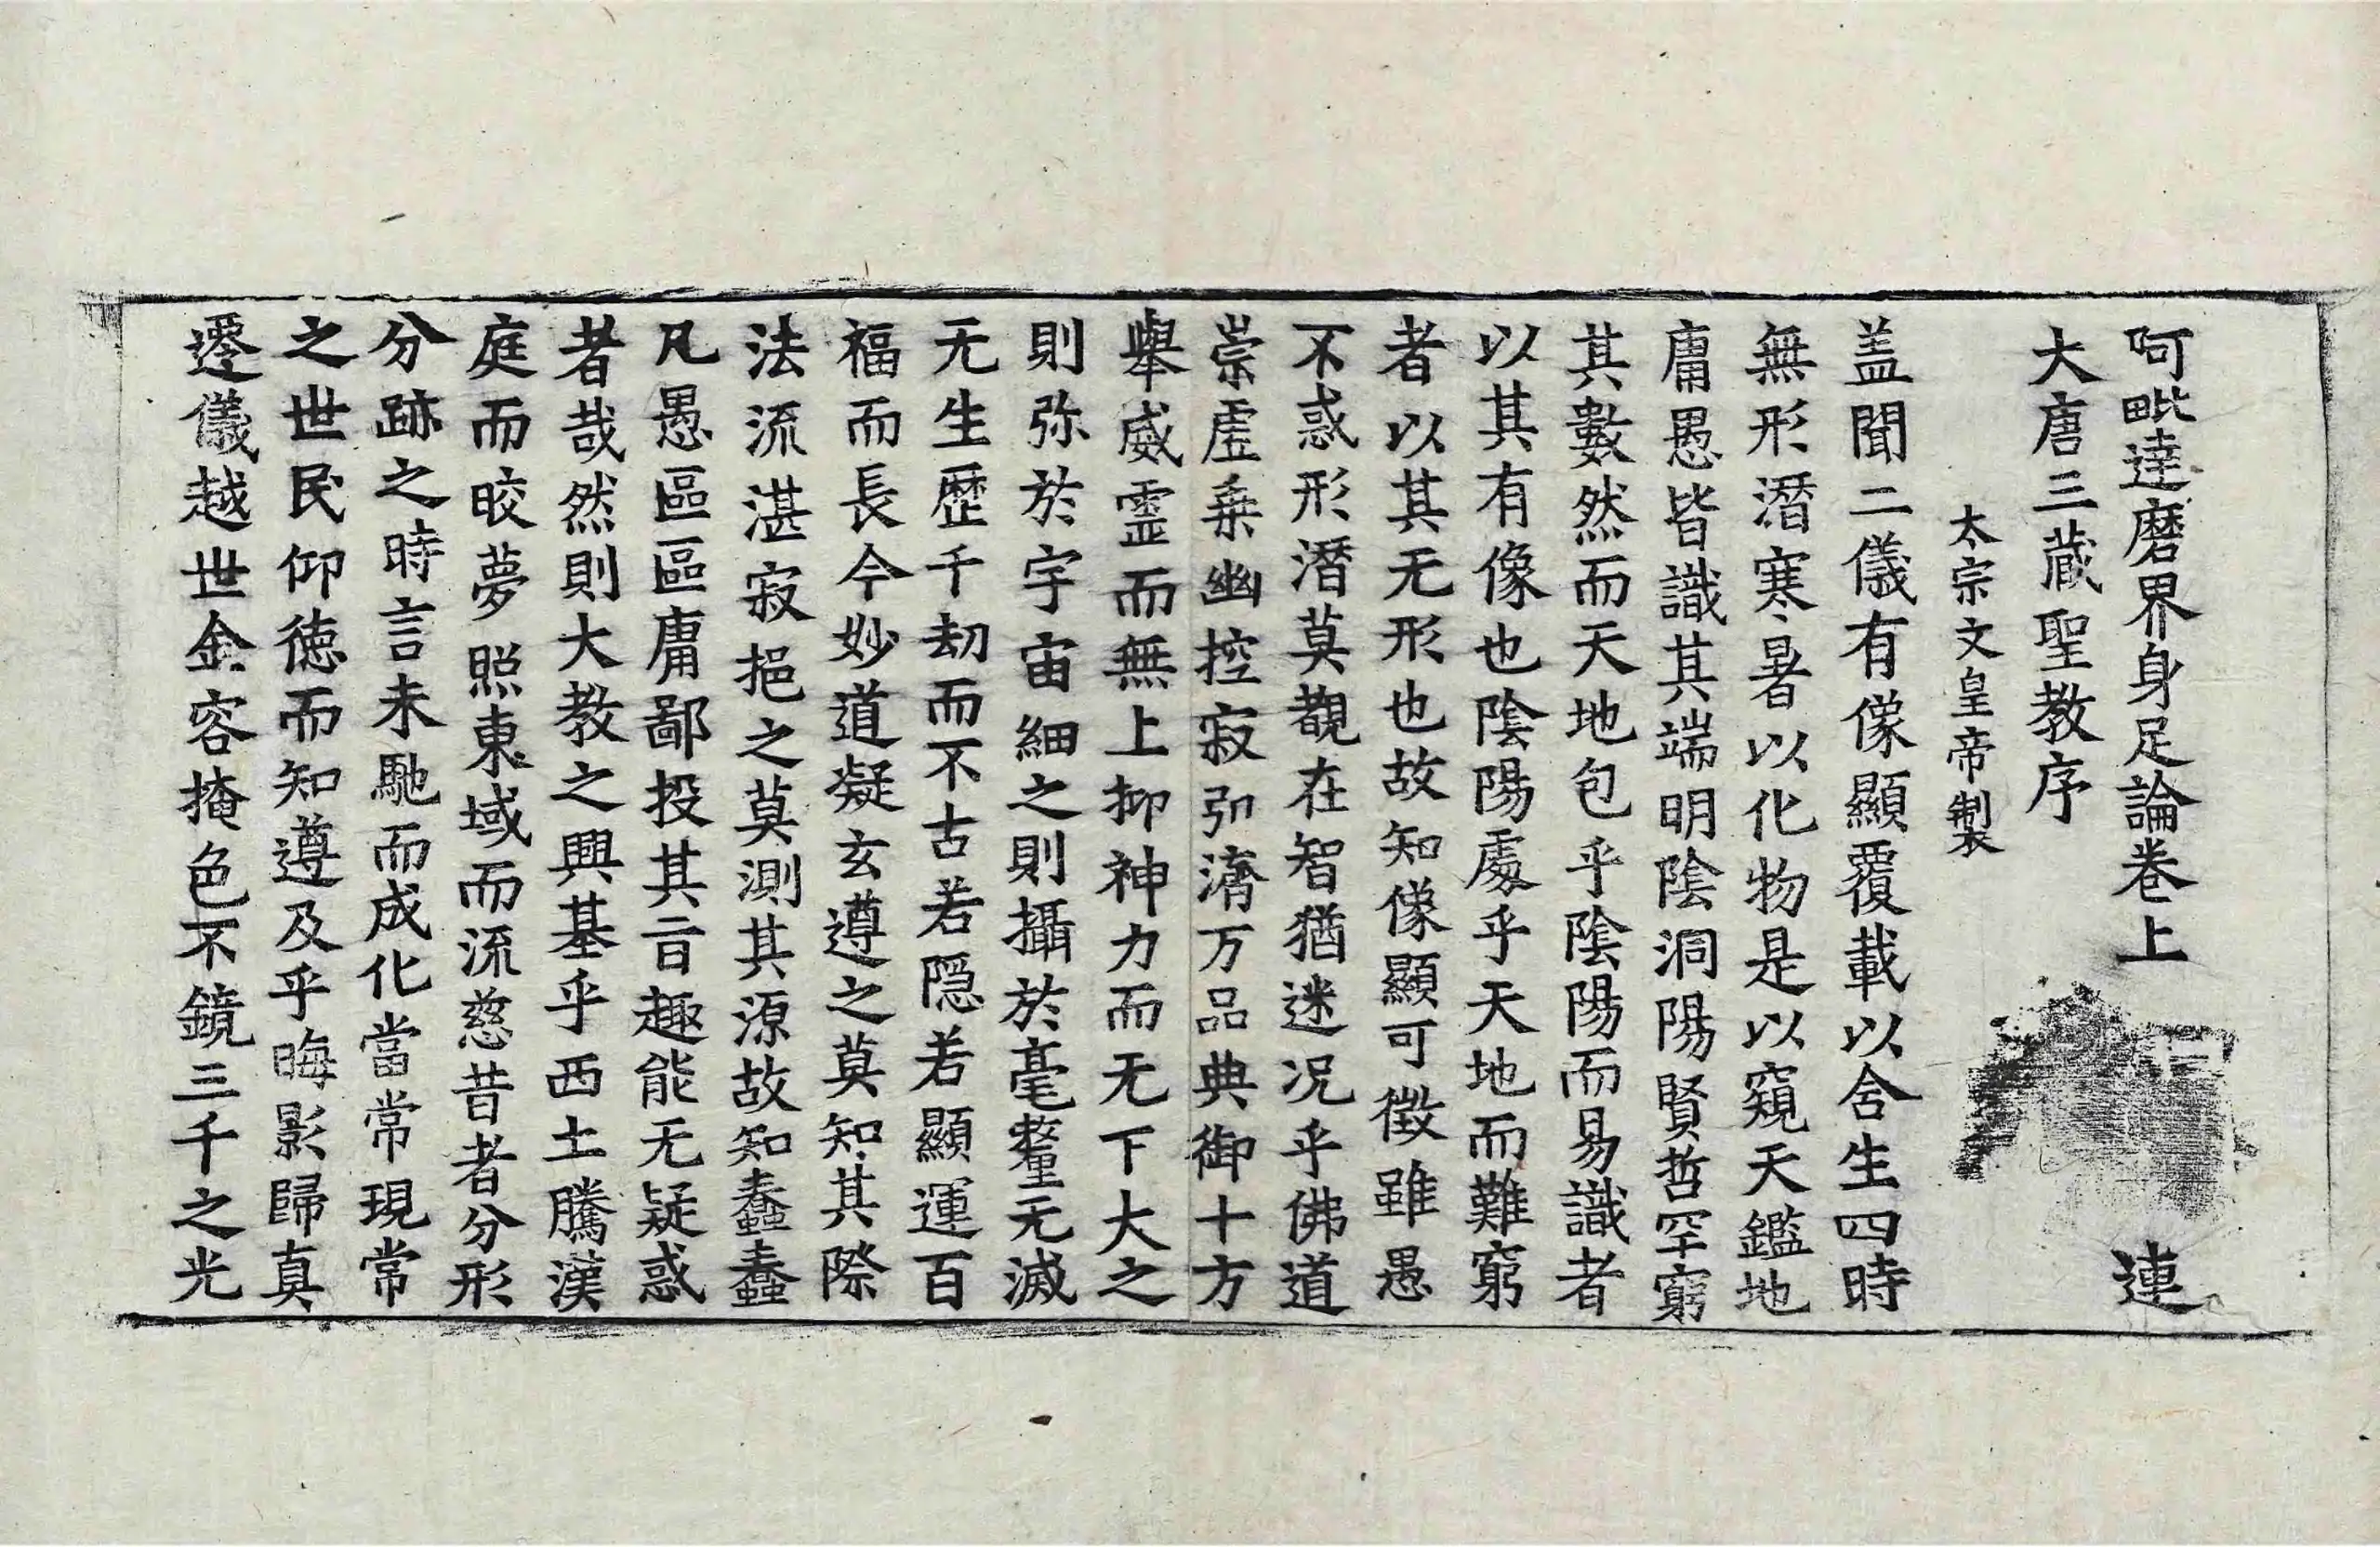 阿毗達磨界身足論卷上 連
大唐三藏聖教序
太宗文皇帝製
盖聞二儀有像顯覆載以含生四時
無形潛寒暑以化物是以窺天鑑地
庸愚皆識其端明陰洞陽賢哲罕窮
其數然而天地包乎陰陽而易識者
以其有像也陰陽處乎天地而難窮
者以其无形也故知像顯可徵雖愚
不惑形潛莫覩在智猶迷况乎佛道
崇虛乗幽控寂引濟万品典御十方
舉威靈而無上抑神力而无下大之
則弥於宇宙細之則攝於毫氂无滅
无生歷千劫而不古若隱若顯運百
福而長今妙道凝玄遵之莫知其際
法流湛寂挹之莫測其源故知蠢蠢
凡愚區區庸鄙投其旨趣能无疑惑
者哉然則大教之興基乎西土騰漢
庭而晈夢照東域而流慈昔者分形
分跡之時言未馳而成化當常現常
之世民仰德而知遵及乎晦影歸真
遷儀越世金容掩色不鏡三千之光